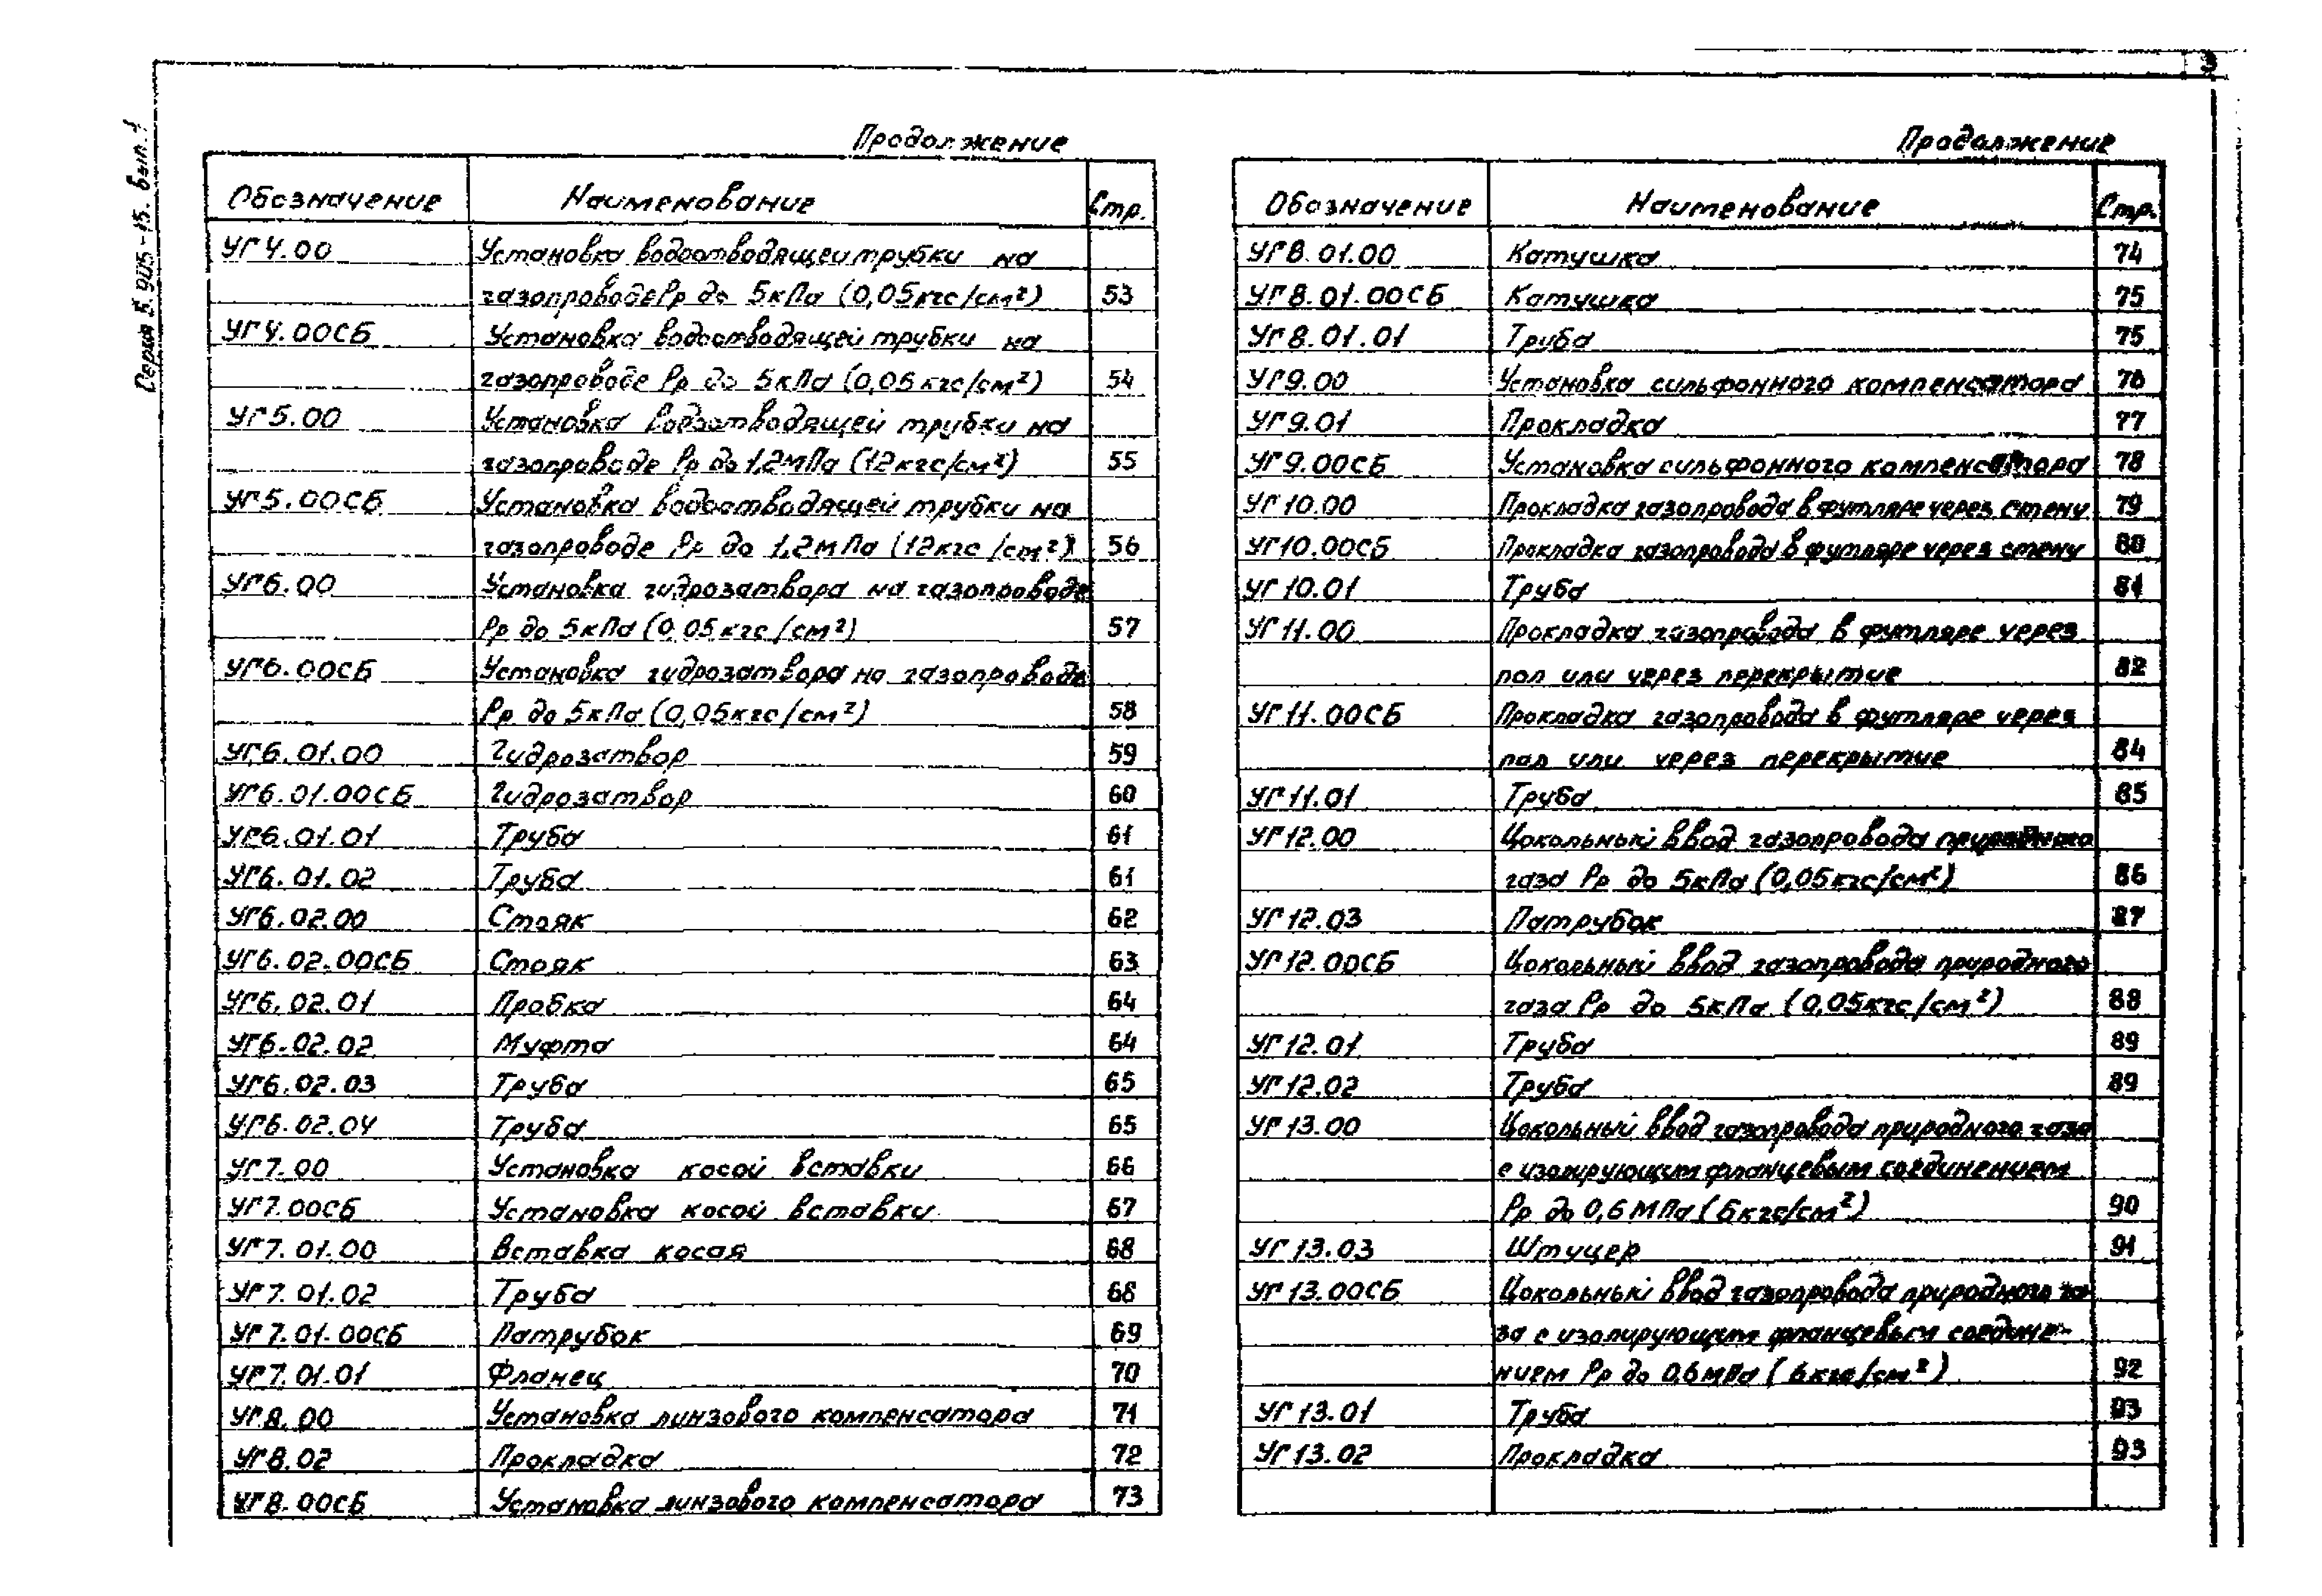 3
Серия 5.905-15. Вып.1
Продолжение
Обозначение Наименование Стр.
УГ4.00 Установка водоотводящей трубки на
газопроводе Рр до 5кПа (0,05кгс/см²) 53
УГ4.00СБ Установка водоотводящей трубки на
газопроводе Рр до 5кПа (0,05кгс/см²) 54
УГ5.00 Установка водоотводящей трубки на
газопроводе Рр до 1,2МПа (12кгс/см²) 55
УГ5.00СБ Установка водоотводящей трубки на
газопроводе Рр до 1,2МПа (12кгс/см²) 56
УГ6.00 Установка гидрозатвора на газопроводе
Рр до 5кПа (0,05кгс/см²) 57
УГ6.00СБ Установка гидрозатвора на газопроводе
Рр до 5кПа (0,05кгс/см²) 58
УГ6.01.00 Гидрозатвор 59
УГ6.01.00СБ Гидрозатвор 60
УГ6.01.01 Труба 61
УГ6.01.02 Труба 61
УГ6.02.00 Стояк 62
УГ6.02.00СБ Стояк 63
УГ6.02.01 Пробка 64
УГ6.02.02 Муфта 64
УГ6.02.03 Труба 65
УГ6.02.04 Труба 65
УГ7.00 Установка косой вставки 66
УГ7.00СБ Установка косой вставки 67
УГ7.01.00 Вставка косая 68
УГ7.01.02 Труба 68
УГ7.01.00СБ Патрубок 69
УГ7.01.01 Фланец 70
УГ8.00 Установка линзового компенсатора 71
УГ8.02 Прокладка 72
УГ8.00СБ Установка линзового компенсатора 73
Продолжение
Обозначение Наименование Стр.
УГ8.01.00 Катушка 74
УГ8.01.00СБ Катушка 75
УГ8.01.01 Труба 75
УГ9.00 Установка сильфонного компенсатора 76
УГ9.01 Прокладка 77
УГ9.00СБ Установка сильфонного компенсатора 78
УГ10.00 Прокладка газопровода в футляре через стену 79
УГ10.00СБ Прокладка газопровода в футляре через стену 80
УГ10.01 Труба 81
УГ11.00 Прокладка газопровода в футляре через
пол или через перекрытие 82
УГ11.00СБ Прокладка газопровода в футляре через
пол или через перекрытие 84
УГ11.01 Труба 85
УГ12.00 Цокольный ввод газопровода природного
газа Рр до 5кПа (0,05кгс/см²) 86
УГ12.03 Патрубок 87
УГ12.00СБ Цокольный ввод газопровода природного
газа Рр до 5кПа (0,05кгс/см²) 88
УГ12.01 Труба 89
УГ12.02 Труба 89
УГ13.00 Цокольный ввод газопровода природного газа
с изолирующим фланцевым соединением
Рр до 0,6МПа (6кгс/см²) 90
УГ13.03 Штуцер 91
УГ13.00СБ Цокольный ввод газопровода природного га-
за с изолирующим фланцевым соедине-
нием Рр до 0,6МПа (6кгс/см²) 92
УГ13.01 Труба 93
УГ13.02 Прокладка 93